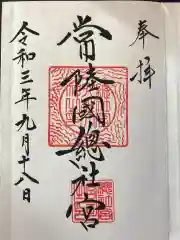 奉拝
常陸國總社宮
令和三年九月十八日